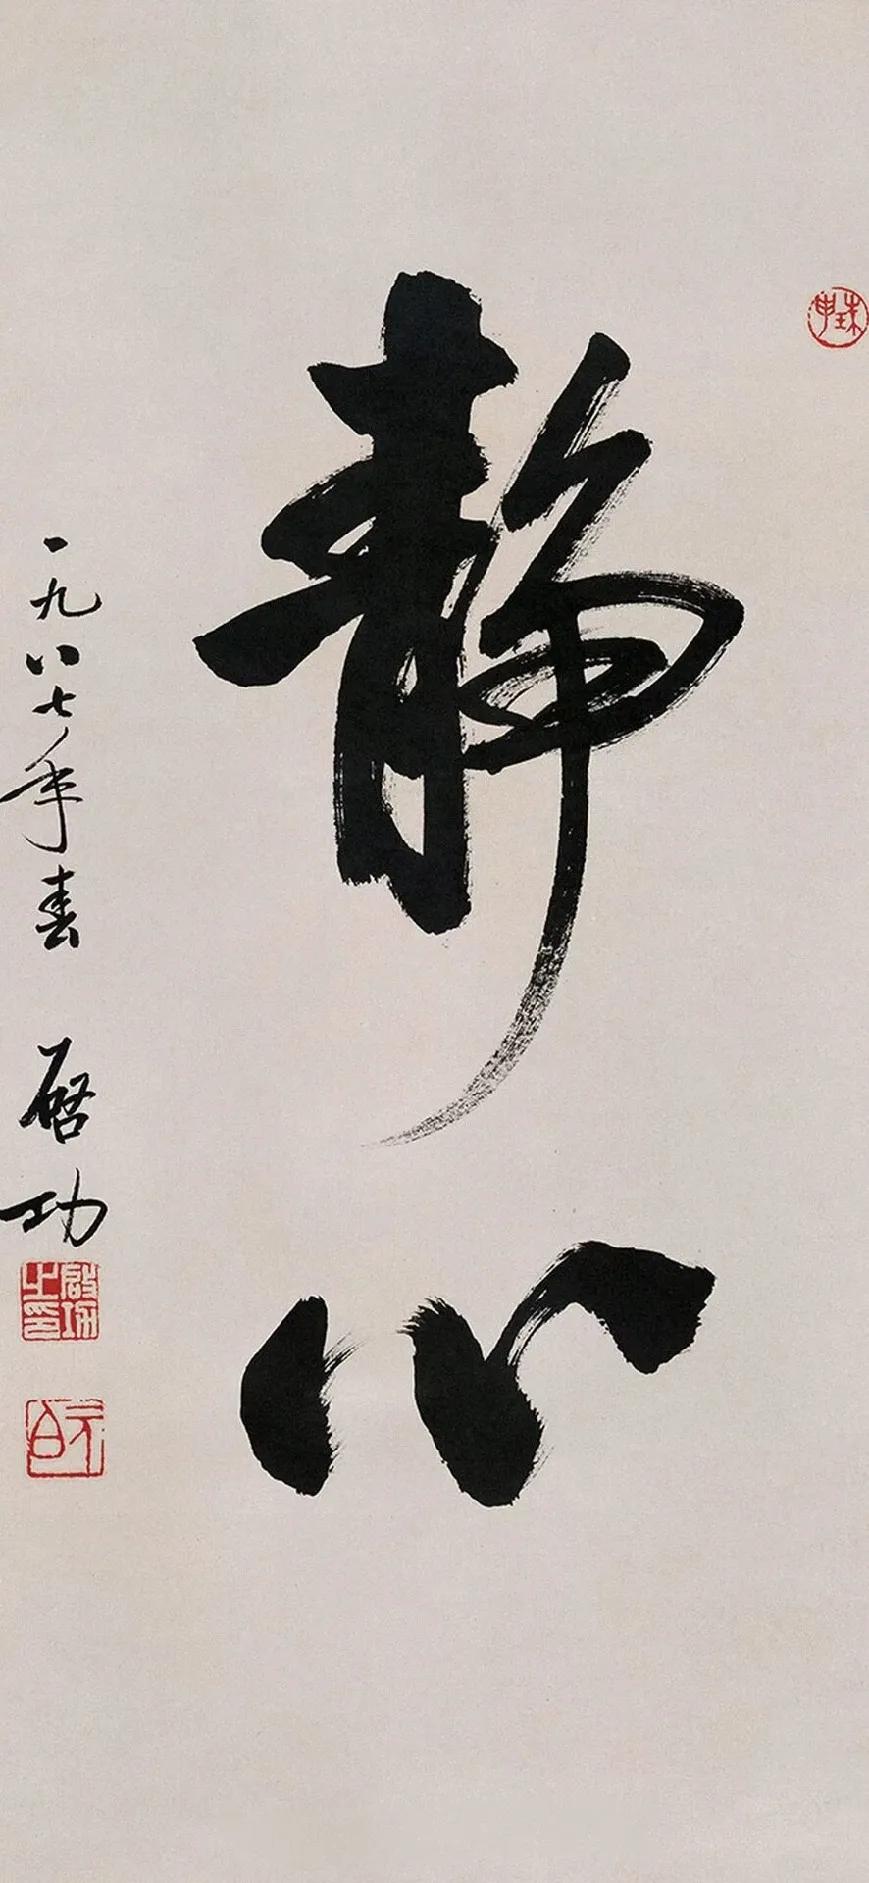 静心
一九八七年春
启功
启功之印
元白